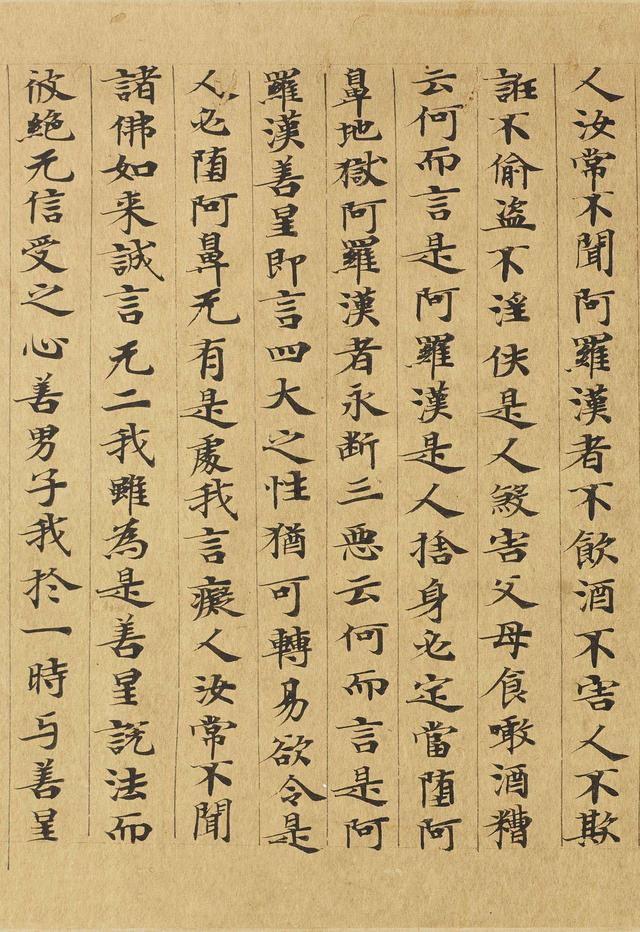 人汝常不聞阿羅漢者不飲酒不害人不欺
誑不偷盗不淫佚是人煞害父母食噉酒糟
云何而言是阿羅漢是人捨身必定當堕阿
鼻地獄阿羅漢者永断三惡云何而言是阿
羅漢善星即言四大之性猶可轉易欲令是
人必堕阿鼻无有是處我言癡人汝常不聞
諸佛如来誠言无二我雖為是善星說法而
彼絶无信受之心善男子我扵一時与善星